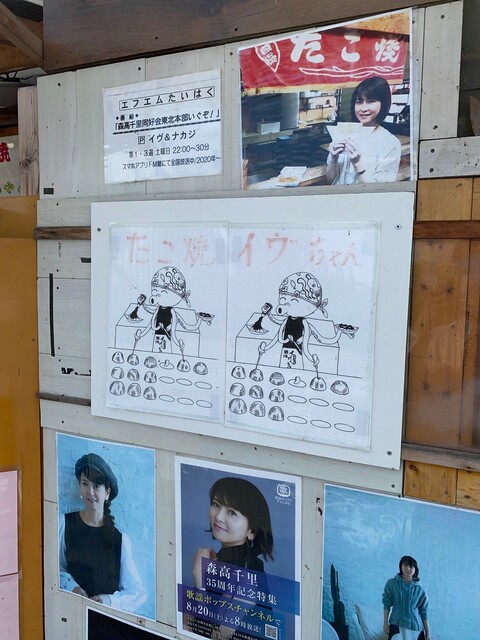 エフエムたいはく
●番組●
「森高千里同好会東北本部いぐぞ！」
P イヴ＆ナカジ
第1・3週 土曜日 22:00～30分
スマホアプリFM聴にて全国放送中/2020年～
たこ焼
たこ焼
イヴちゃん
森高千里
35周年記念特集
歌謡ポップスチャンネルで
8月20日(土)よる8時放送!